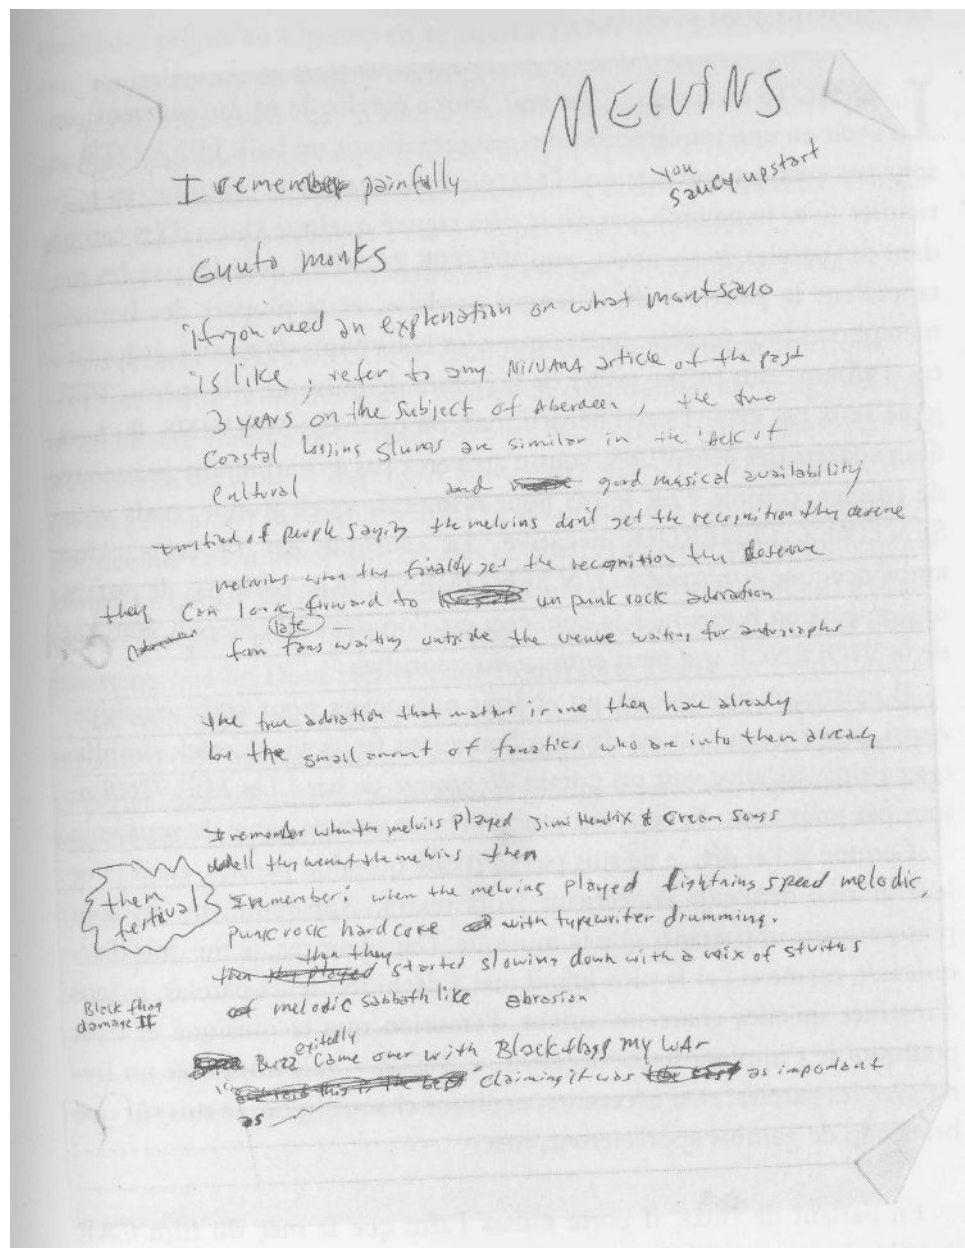 MELVINS
you
saucy upstart
I remember painfully
Gyuto monks
if you need an explenation on what montesano
is like, refer to any NIRVANA article of the past
3 years on the subject of Aberdeen, the two
Coastal logging slums are similar in the lack of
cultural and good musical availability
tired of people saying the melvins don't get the recognition they deserve
melvins when they finally get the recognition they deserve
they can look forward to un punk rock adoration
late
from fans waiting outside the venue waiting for autographs
the true adoration that matters is one they have already
by the small amount of fanatics who are into them already
I remember when the melvins played Jimi Hendrix & Cream songs
well they werent the melvins then
them
festival
I remember: when the melvins played lightning speed melodic,
punk rock hard core with typewriter drumming.
then they
then they played started slowing down with a mix of
of melodic sabbath like abrasion
Black flag
damage II
exitedly
Buzz came over with Black flags my WAr
and said this is the best claiming it was as important
as